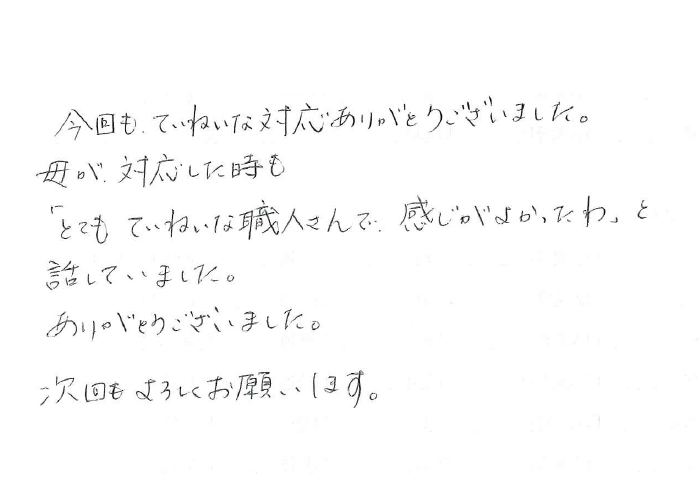 今回も、ていねいな対応ありがとうございました。
母が、対応した時も
「とても ていねいな職人さんで、感じがよかったわ」と
話していました。
ありがとうございました。
次回もよろしくお願いします。